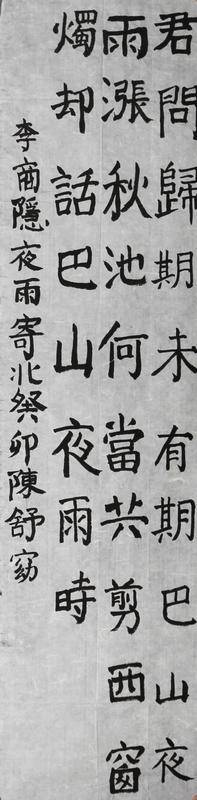 君問歸期未有期巴山夜
雨漲秋池何當共剪西窗
燭却話巴山夜雨時
李商隱夜雨寄北癸卯陳舒窈